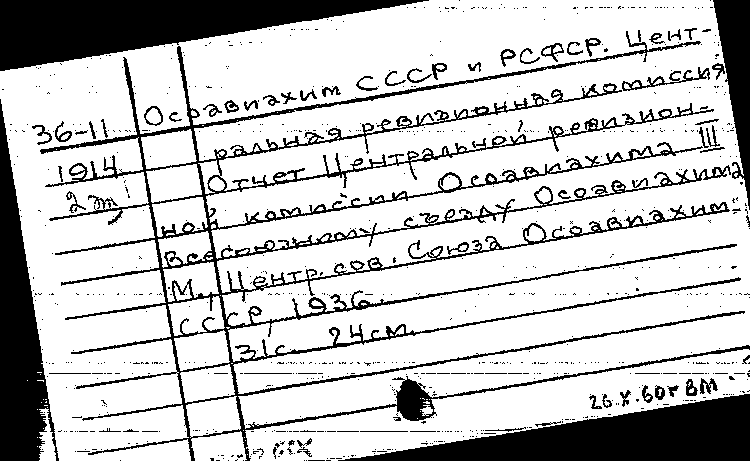 36-11 Осоавиахим СССР и РСФСР. Цент-
ральная ревизионная комиссия
1914 Отчет Центральной ревизион-
2 эт ной комиссии Осоавиахима III
Всесоюзному съезду Осоавиахима
М., Центр. сов. Союза Осоавиахим
СССР, 1936.
31с. 24см.
26.X.60г ВМ